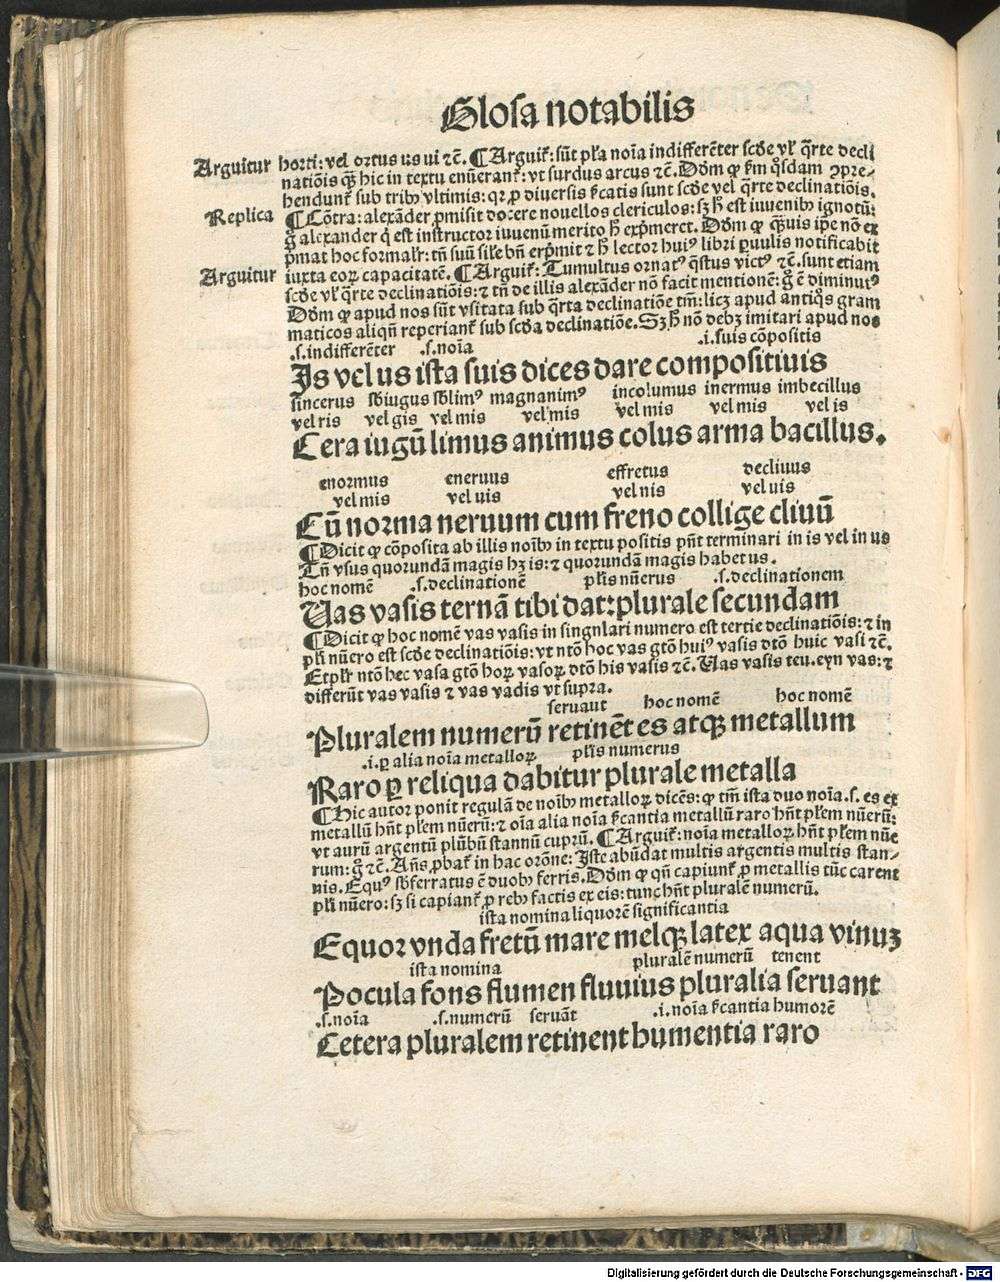 Glosa notabilis
Arguitur horti: vel ortus us ui ⁊c̄. ¶Arguiť: sūt pl̄a noīa indifferēter scd̄e vľ q̄rte decli
natiōis q̄ꝫ hic in textu enūeranť: vt surdus arcus ⁊c̄. Dd̄m ꝙ ẜm q̊sdam ꝯpre⸗
hendunť sub tribꝰ vltimis: qꝛ ꝓ diuersis ẜcatis sunt scd̄e vel q̄rte declinatiōis.
Replica ¶Cōtra: alexāder ꝓmisit docere nouellos clericulos: sꝫ h̄ est iuuenibꝰ ignotū:
g̊ alexander q́ est instructor iuuenū merito h̄ exp̄meret. Dd̄m ꝙ q̄ꝫuis ip̄e nō ex
p̄mat hoc formalr̄: tn̄ suū sil̄e bn̄ exp̄mit ⁊ h̄ lector huiꝰ libri ꝑuulis notificabit
Arguitur iuxta eoꝝ capacitatē. ¶Arguiť: Tumultus ornatꝰ q̄stus victꝰ ⁊c̄. sunt etiam
scd̄e vľ q̄rte declinatiōis: ⁊ tn̄ de illis alexāder nō facit mentionē: g̊ ē diminutꝰ
Dd̄m ꝙ apud nos sūt vsitata sub q̄rta declinatiōe tm̄: licꝫ apud antiq̊s gram
maticos aliqn̄ reperianť sub scd̄a declinatiōe. Sꝫ h̄ nō debꝫ imitari apud nos
.s. indifferēter .s. noīa .i. suis cōpositis
Is vel us ista suis dices dare compositiuis
sincerus sb̄iugus sb̄limꝰ magnanimꝰ incolumus inermus imbecillus
vel ris vel gis vel mis vel mis vel mis vel mis vel is
Cera iugū limus animus colus arma bacillus.
enormus eneruus effretus decliuus
vel mis vel uis vel nis vel uis
Cū norma neruum cum freno collige cliuū
¶Dicit ꝙ cōposita ab illis noībꝰ in textu positis pn̄t terminari in is vel in us
Tn̄ vsus quorundā magis hꝫ is: ⁊ quorundā magis habet us.
hoc nomē .s. declinationē pl̄is nūerus .s. declinationem
Uas vasis ternā tibi dat: ⁊ plurale secundam
¶Dicit ꝙ hoc nomē vas vasis in singulari numero est tertie declinatiōis: ⁊ in
pl̄i nūero est scd̄e declinatiōis: vt ntō hoc vas gtō huiꝰ vasis dtō huic vasi ⁊c̄.
Et pl̄r ntō hec vasa gtō hoꝝ vasoꝝ dtō his vasis ⁊c̄. Uas vasis teu. eyn vas: ⁊
differūt vas vasis ⁊ vas vadis vt supra.
seruant hoc nomē hoc nomē
Pluralem numerū retinēt es atqꝫ metallum
.i. ꝑ alia noīa metalloꝝ pl̄is numerus
Raro ꝑ reliqua dabitur plurale metalla
¶Hic autor ponit regulā de noībꝰ metalloꝝ dicēs: ꝙ tm̄ ista duo noīa .s. es et
metallū hn̄t pl̄em nūerū: ⁊ oīa alia noīa ẜcantia metallū raro hn̄t pl̄em nūerū:
vt aurū argentū plūbū stannū cuprū. ¶Arguiť: noīa metalloꝝ hn̄t pl̄em nūe
rum: g̊ ⁊c̄. Ann̄s ꝓbať in hac orōne: Iste abūdat multis argentis multis stan⸗
nis. Equꝰ sb̄ferratus ē duobꝰ ferris. Dd̄m ꝙ qn̄ capiunť ꝓ metallis tūc carent
pl̄i nūero: sꝫ si capianť ꝓ rebꝰ factis ex eis: tunc hn̄t pluralē numerū.
ista nomina liquorē significantia
Equor vnda fretū mare melqꝫ latex aqua vinuꝫ
ista nomina pluralē numerū tenent
Pocula fons flumen fluuius pluralia seruant
.s. noīa .s. numerū seruāt .i. noīa ẜcantia humorē
Cetera pluralem retinent humentia raro
Digitalisierung gefördert durch die Deutsche Forschungsgemeinschaft - DFG